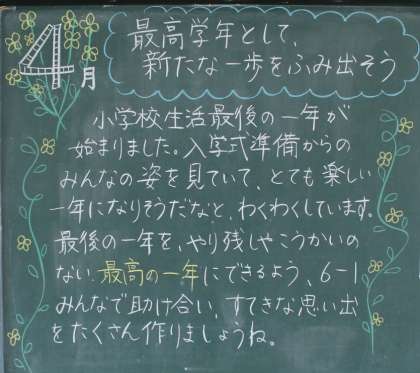 4月
最高学年として、
新たな一歩をふみ出そう
小学校生活最後の一年が
始まりました。入学式準備からの
みんなの姿を見ていて、とても楽しい
一年になりそうだなと、わくわくしています。
最後の一年を、やり残しやこうかいの
ない最高の一年にできるよう、6-1
みんなで助け合い、すてきな思い出
をたくさん作りましょうね。